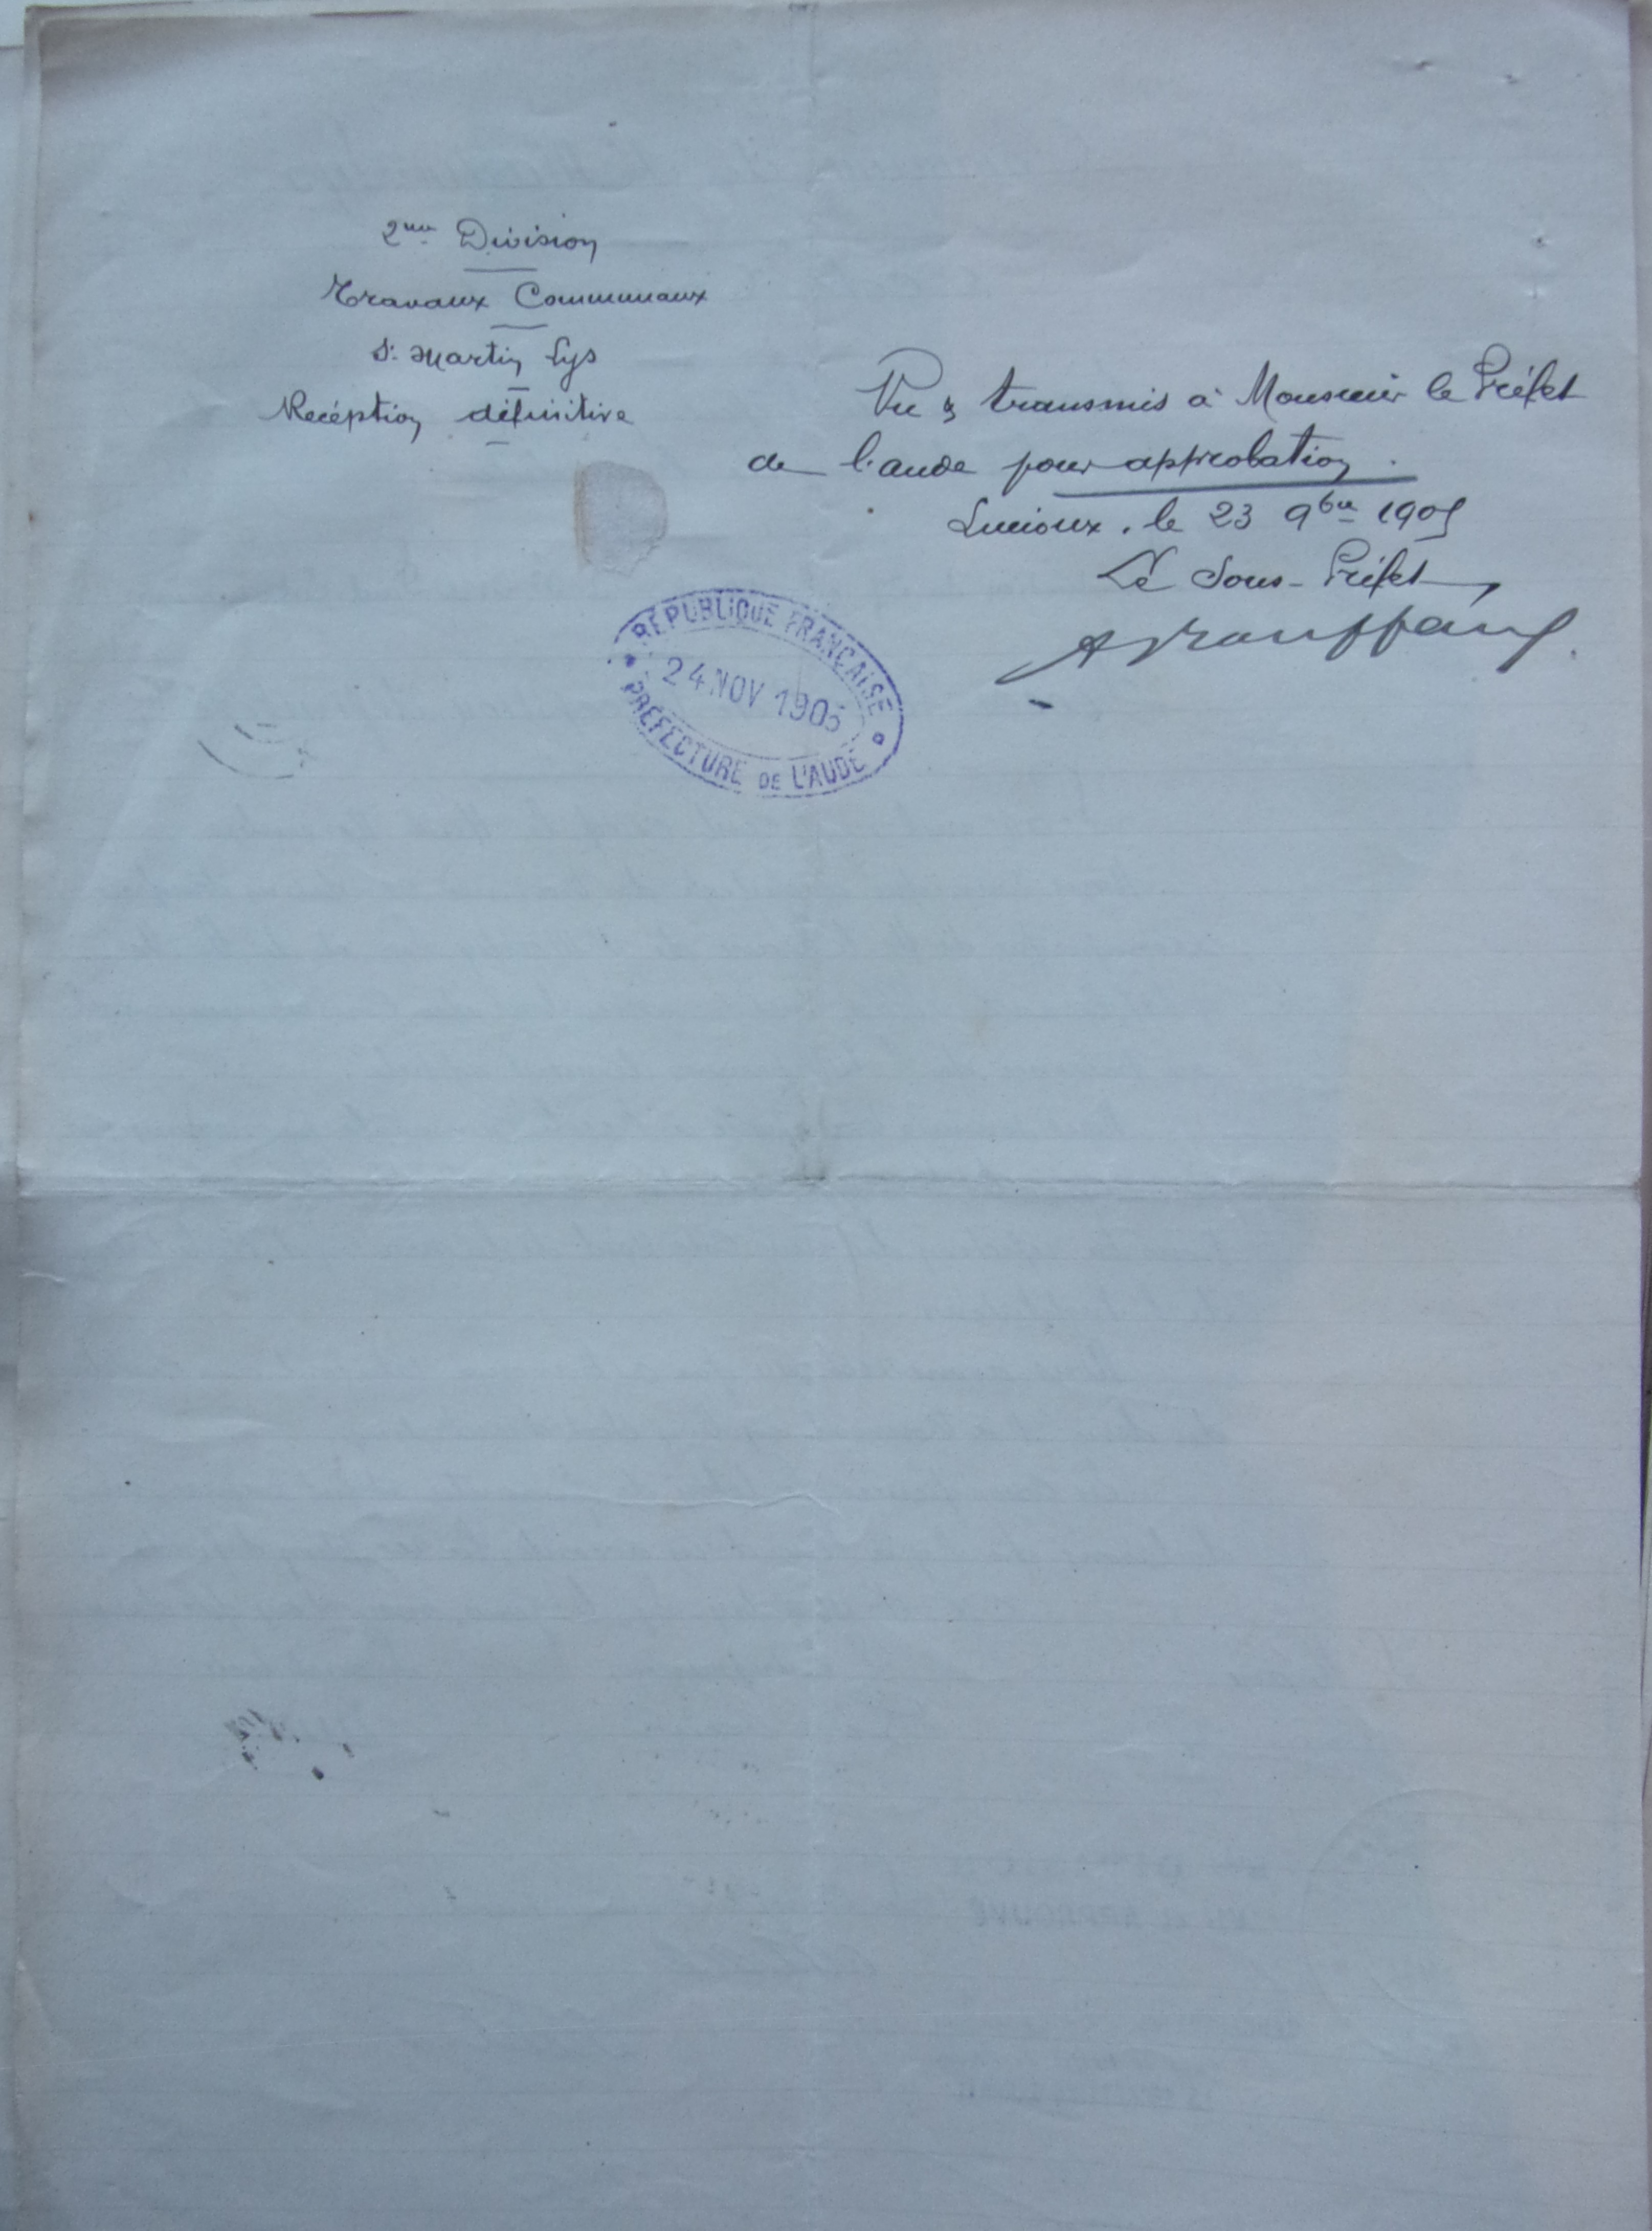 2me Division
Travaux Communaux
St Martin Lys
Réception définitive
Vu & transmis à Monsieur le Préfet
de l'aude pour approbation.
Limoux, le 23 9bre 1905
Le Sous-Préfet,
RÉPUBLIQUE FRANÇAISE
24 NOV 1905
PRÉFECTURE DE L'AUDE